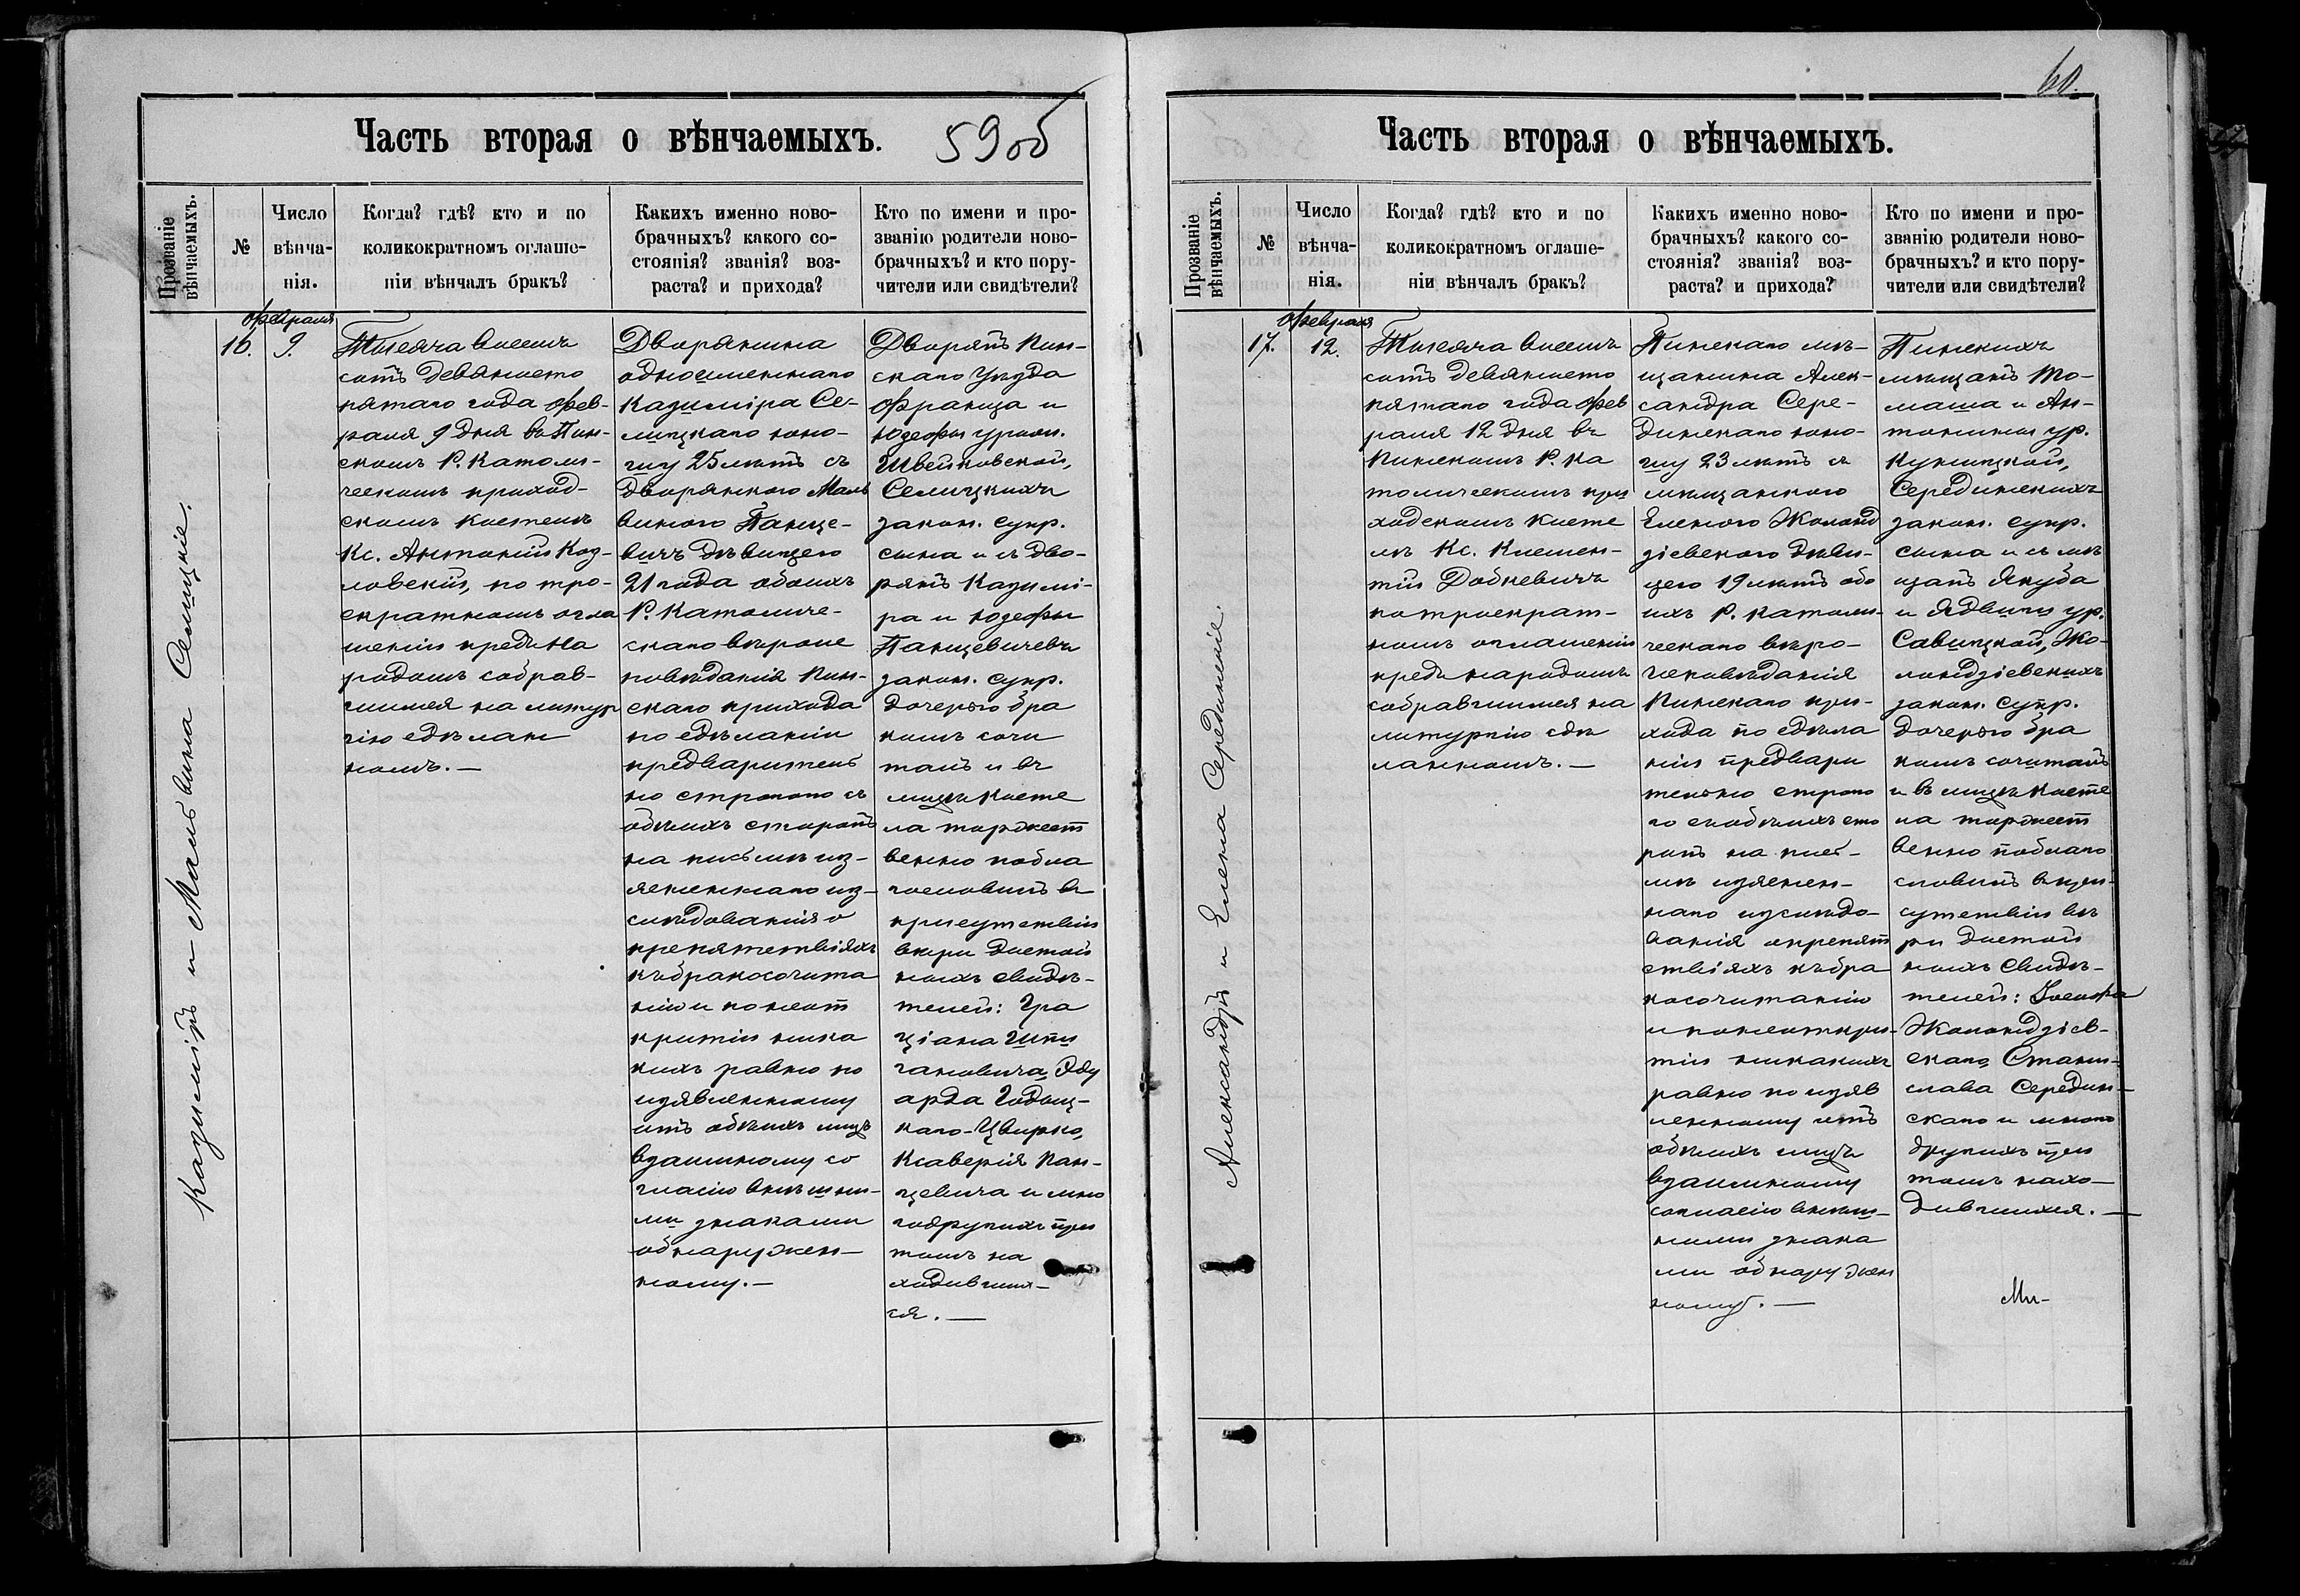 Часть вторая о вѣнчаемыхъ.
59 об
Прозваніе вѣнчаемыхъ.
№
Число вѣнча-
нія.
Когда? гдѣ? кто и по
коликократномъ оглаше-
ніи вѣнчалъ бракъ?
Какихъ именно ново-
брачныхъ? какого со-
стоянія? званія? воз-
раста? и прихода?
Кто по имени и про-
званію родители ново-
брачныхъ? и кто пору-
чители или свидѣтели?
Казиміръ и Мальвина Селицкіе.
16.
Февраля
9.
Тысяча восемь
сотъ девяносто
пятаго года Фев-
раля 9 дня въ Пин-
скомъ Р. Католи-
ческомъ приход-
скомъ костелѣ
Кс. Антоній Коз-
ловскій, по тро-
екратномъ огла
шеніи предъ на
родомъ собрав-
шимся на литур
гію сдѣлан
номъ. —
Дворянина
одноименнаго
Казиміра Се-
лицкаго юно-
шу 25 лѣтъ съ
дворянкою Маль
виною Панце-
вичъ дѣвицею
21 года обоихъ
Р. Католиче-
скаго вѣроис
повѣданія Пин-
скаго прихода
по сдѣланіи
предваритель
но строгаго съ
обѣихъ сторонъ
на письмѣ из-
ясненнаго из-
слѣдованія о
препятствіяхъ
къ бракосочета
нію и по неот
крытіи ника
кихъ равно по
изявленному
отъ обѣихъ лицъ
взаимному со
гласію внѣшни-
ми знаками
обнаружен-
ному. —
Дворянъ Пин-
скаго уѣзда
Франца и
Юзефы урожд.
Швейковской,
Селицкихъ
закон. супр.
сына и съ дво-
рянъ Казимі-
ра и Юзефы
Панцевичевъ
закон. супр.
дочерью бра
комъ соче
талъ и въ
лицѣ косте
ла торжест
венно побла
гословилъ въ
присутствіи
вѣры достой
ныхъ свидѣ-
телей: Гра
ціана
Эду
арда
Ксаверія Пан-
цевича и мно
годругихъ при
томъ на
ходивших-
ся. —
60.
Часть вторая о вѣнчаемыхъ.
Прозваніе вѣнчаемыхъ.
№
Число вѣнча-
нія.
Когда? гдѣ? кто и по
коликократномъ оглаше-
ніи вѣнчалъ бракъ?
Какихъ именно ново-
брачныхъ? какого со-
стоянія? званія? воз-
раста? и прихода?
Кто по имени и про-
званію родители ново-
брачныхъ? и кто пору-
чители или свидѣтели?
Александръ и Елена Серединскіе.
17.
Февраля
12.
Тысяча восемь
сотъ девяносто
пятаго года Фев
раля 12 дня въ
Пинскомъ Р. Ка
толическомъ при
ходскомъ косте
лѣ Кс. Клемен-
тій Добкевичъ
по троекрат-
номъ оглашеніи
предъ народомъ
собравшимся на
литургію сдѣ
ланномъ. —
Пинскаго мѣ-
щанина Алек-
сандра Сере-
динскаго юно-
шу 23 лѣтъ съ
мѣщанкою
Еленою Жолонд
зіевскою дѣви-
цею 19 лѣтъ обо
ихъ Р. Католи-
ческаго вѣро-
исповѣданія
Пинскаго при-
хода по сдѣла
ніи предвари
тельно строга
го съ обѣихъ сто
ронъ на пись-
мѣ изяснен-
наго изслѣдо-
ванія о препят
ствіяхъ къ бра
косочетанію
и по неоткры-
тіи никакихъ
равно по изяв
ленному отъ
обѣихъ лицъ
взаимному
согласію внѣш-
ними знака
ми обнаружен
ному. —
Пинскихъ
мѣщанъ То-
маша и Ан-
тонины ур.
Куницкой,
Серединскихъ
закон. супр.
сына и съ мѣ
щанъ Якуба
и Ядвиги ур.
Савицкой, Жо-
лондзіевскихъ
закон. супр.
дочерью бра
комъ сочеталъ
и въ лицѣ косте
ла торжест
венно поблаго
словилъ въ при-
сутствіи вѣ
ры достой
ныхъ свидѣ-
телей: Іосифа
Жолондзіев-
скаго, Стани-
слава Середин-
скаго и много
другихъ при
томъ нахо-
дившихся. —